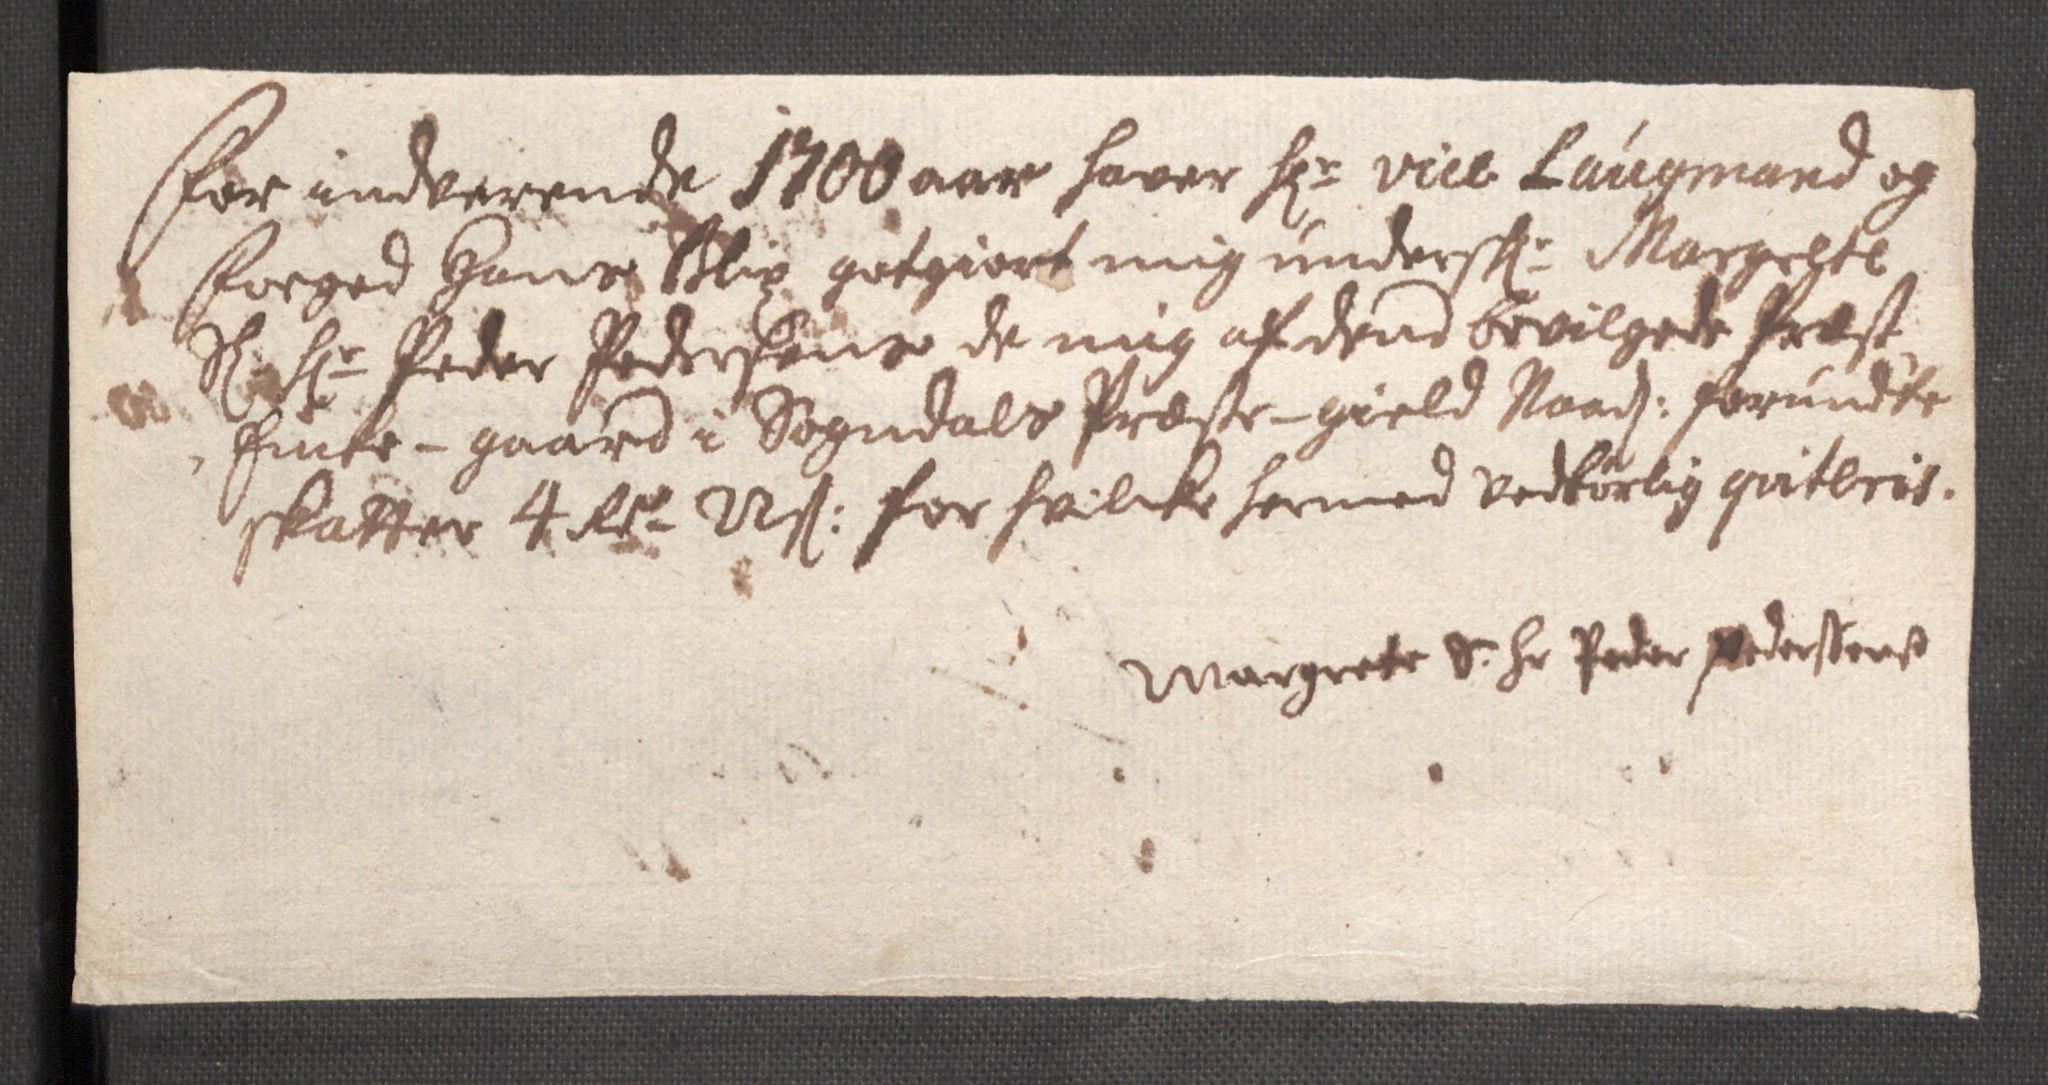 For indverende 1700 aar hafver Hr: vice Laugmand og
Foeged Hans Blix gotgiort mig undersk: Margrete
Sl: Hr: Peder Pedersens de mig af dend bevilgede Præst
Encke-gaard i Sogndals Præste-gield Naad: forundte
skatter 4 Rdr N: for hvilcke hermed vedbørlig qviteris.
Margrete S: Hr Peder Pedersens